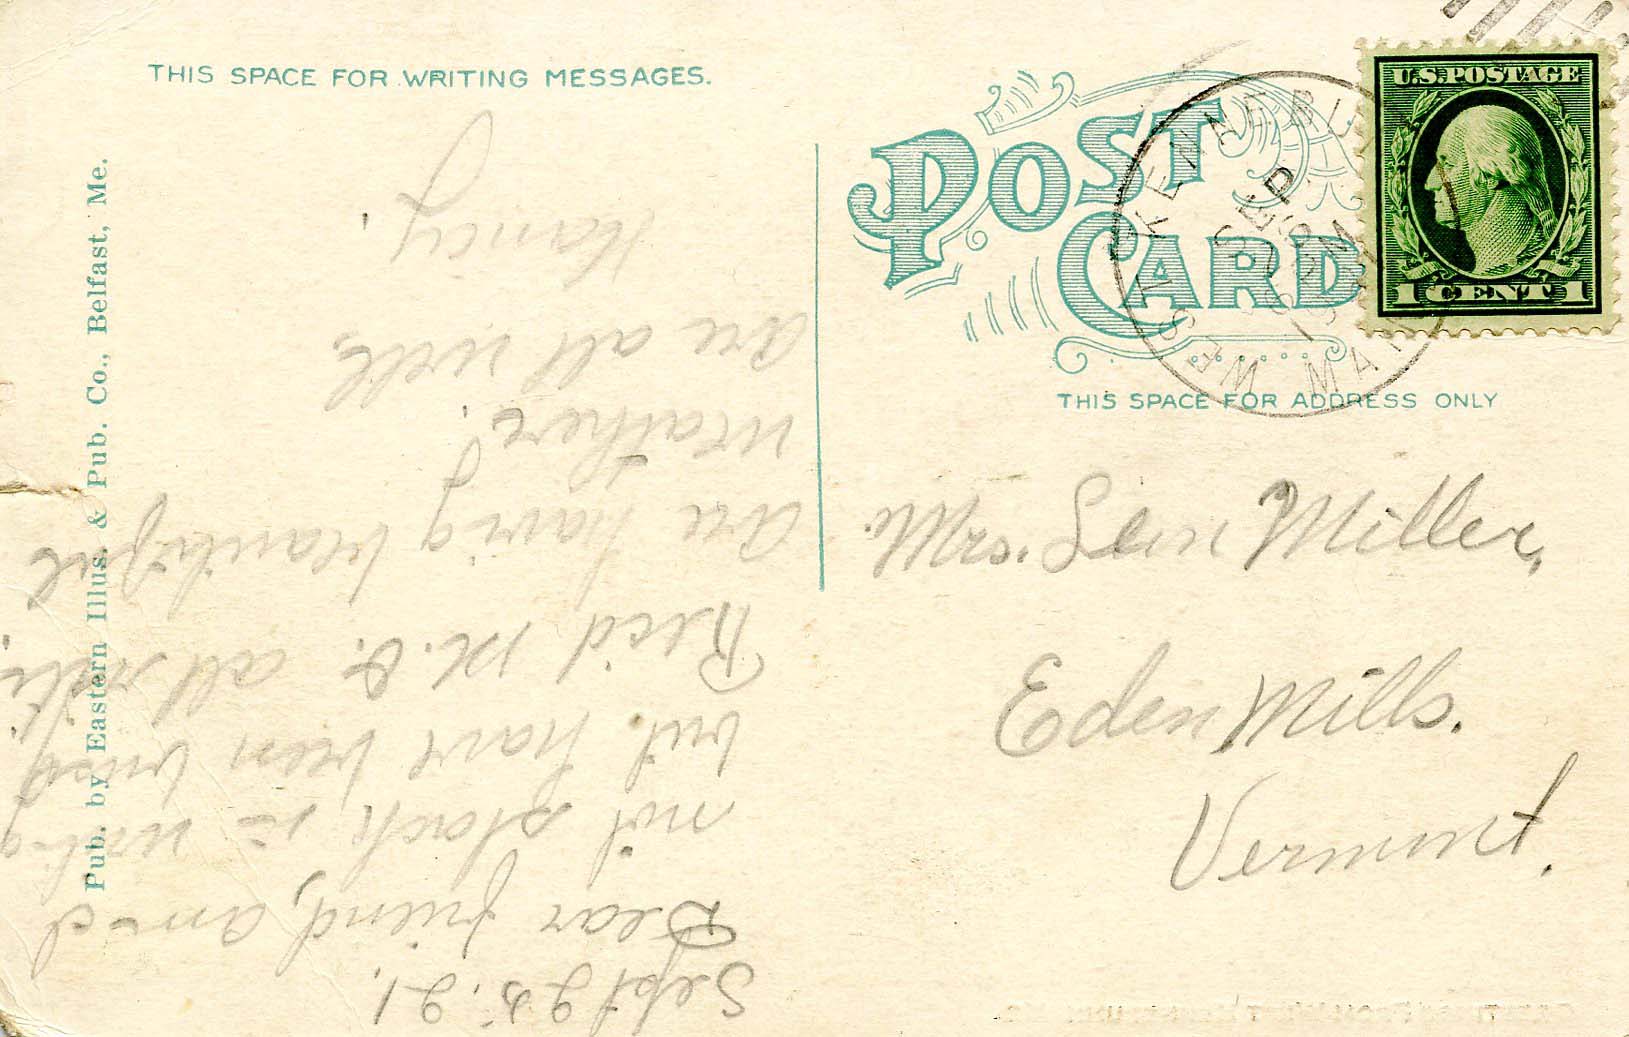 THIS SPACE FOR WRITING MESSAGES.
POST CARD
THIS SPACE FOR ADDRESS ONLY
U.S. POSTAGE
1 CENT 1
WEST KENNEBU
SEP
Pub. by Eastern Illus. & Pub. Co., Belfast, Me.
Mrs. Lem Miller,
Eden Mills.
Vermont.
Sept 25. 21.
Dear friend, am
not slack in writing
but have been busy
Rec'd M.O. all
are having beautiful
weather.
are all well.